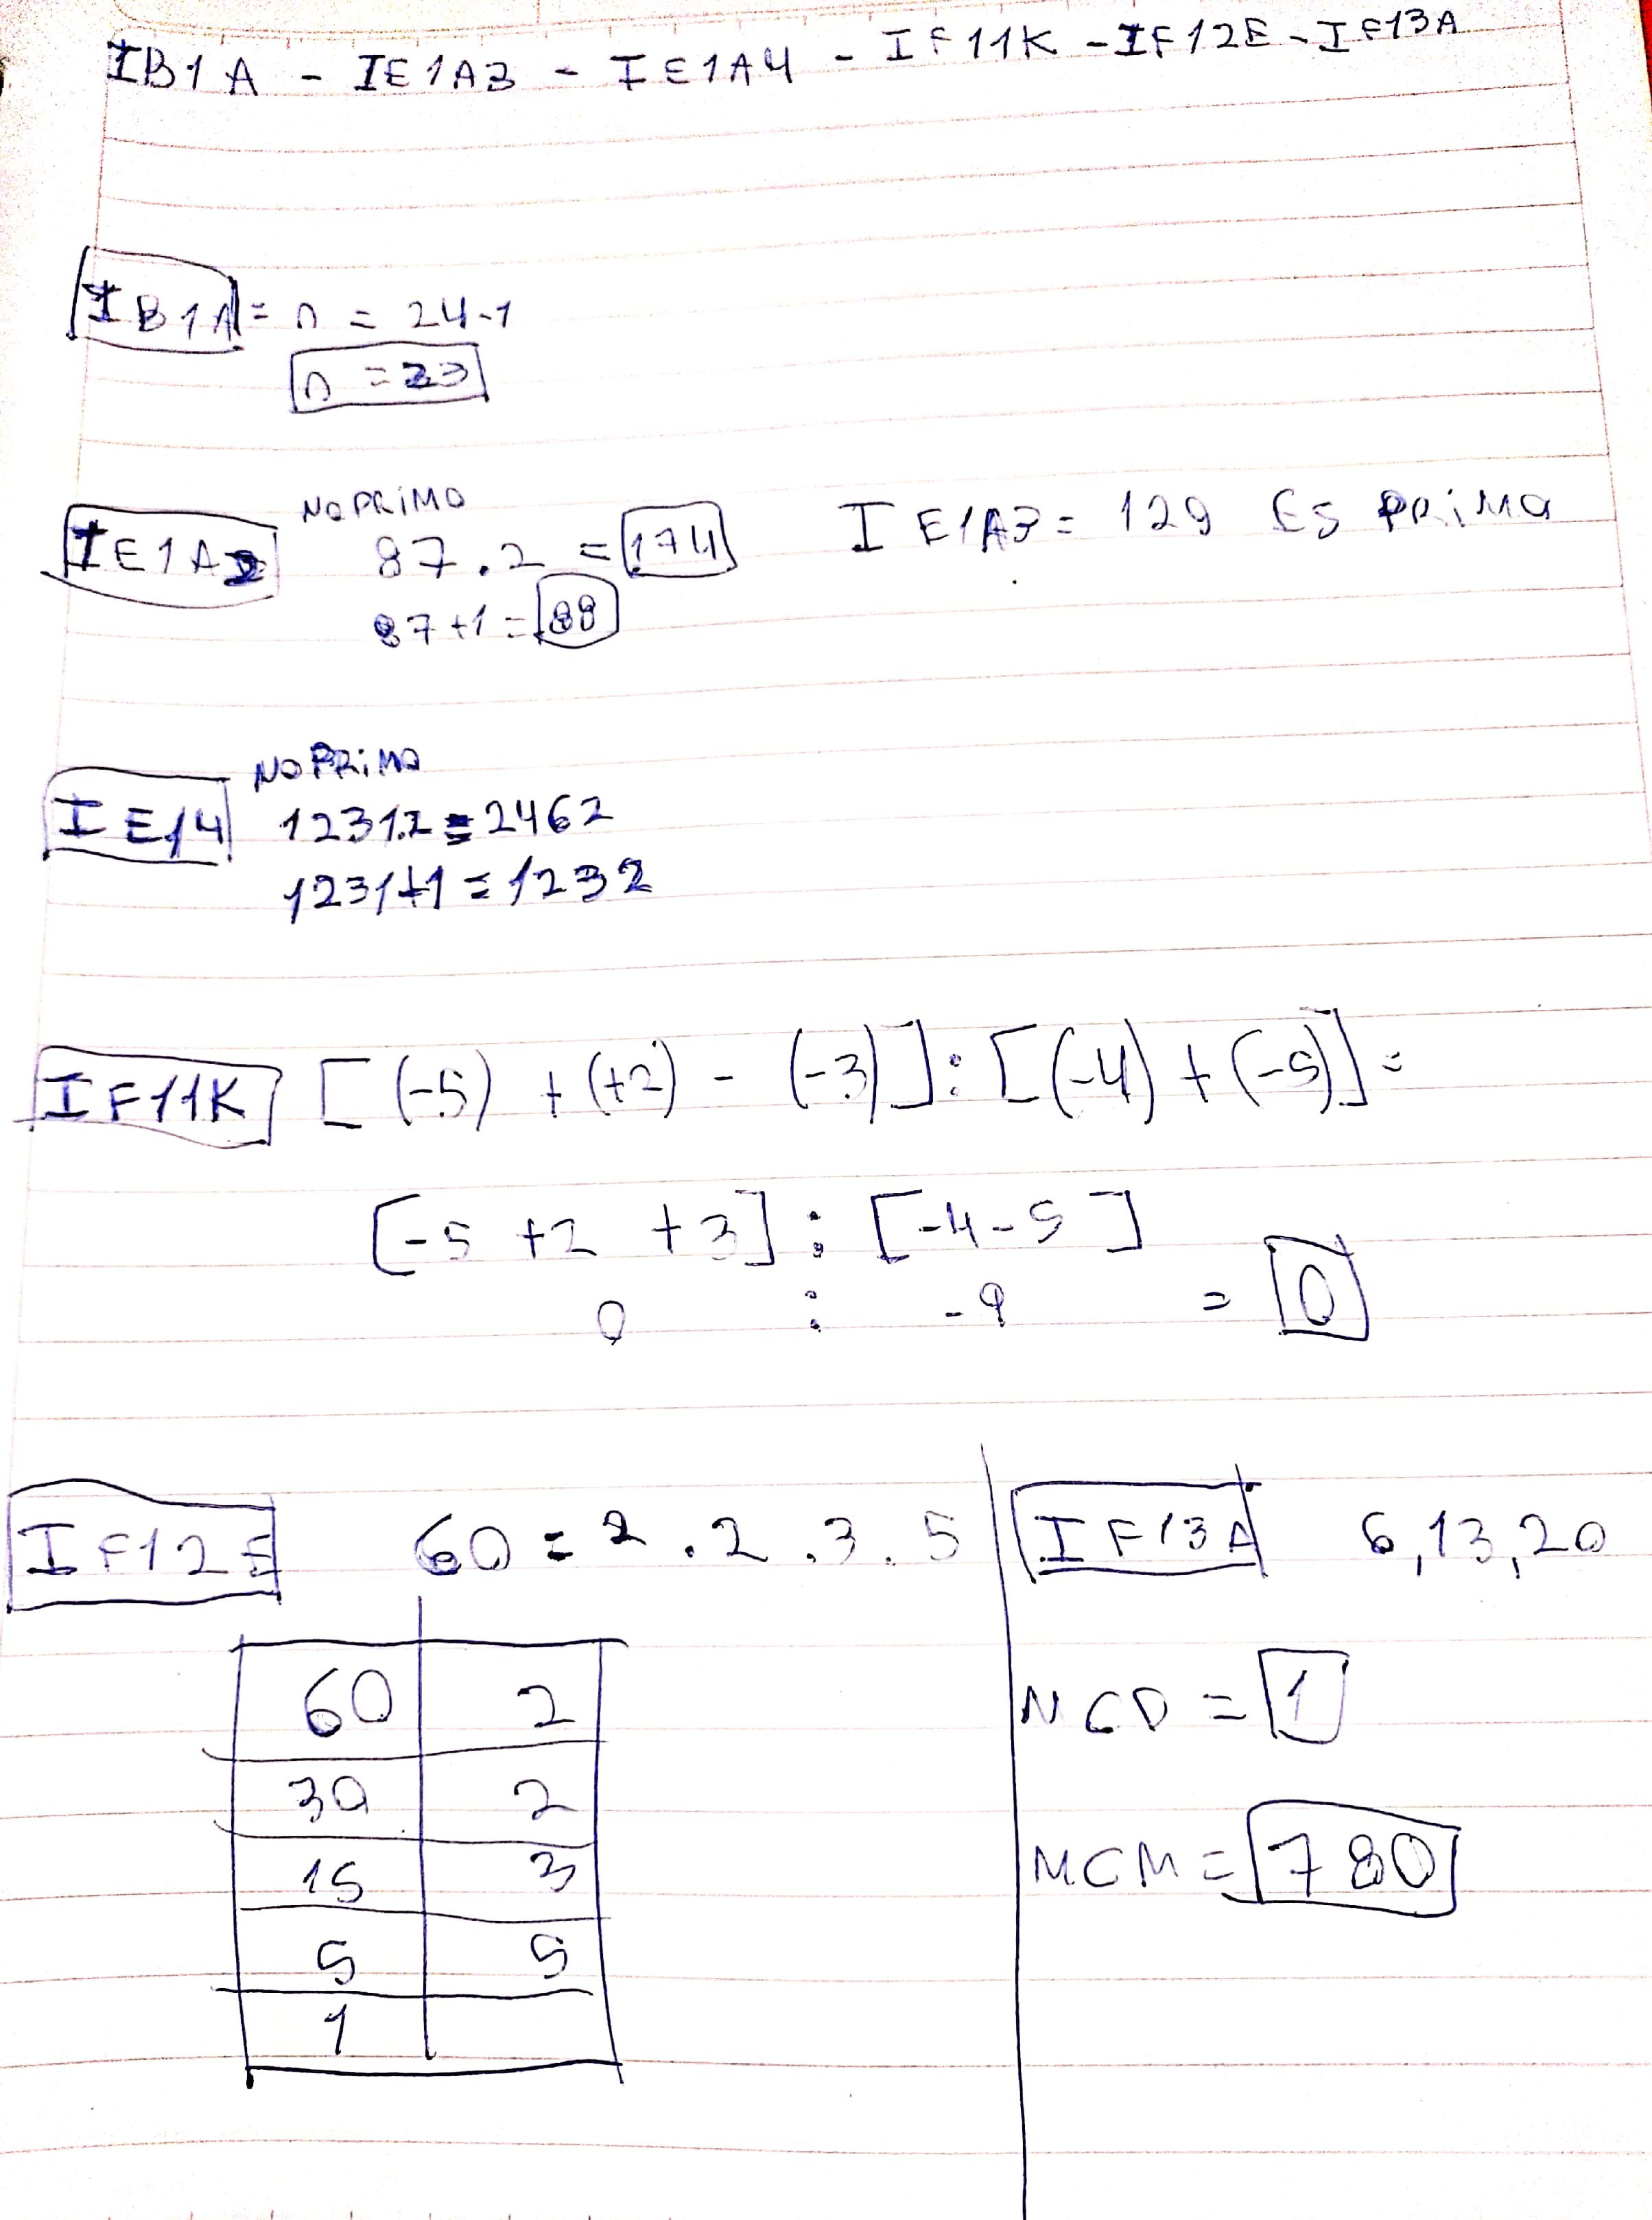 IB1A - IE1A3 - IE1A4 - IF11K - IF12E - IF13A
IB1A = n = 24-1
n = 23
NO PRIMO
IE1A2 87.2 = 174 IE1A3 = 129 ES PRIMO
87+1 = 88
NO PRIMO
IE14 1231.2 = 2462
1231+1 = 1232
IF11K [(-5) + (+2) - (-3)] : [(-4) + (-5)] =
[-5 +2 +3] : [-4-5]
0 : -9 = 0
IF12E 60 = 2.2.3.5
60 2
30 2
15 3
5 5
1
IF13A 6,13,20
MCD = 1
MCM = 780